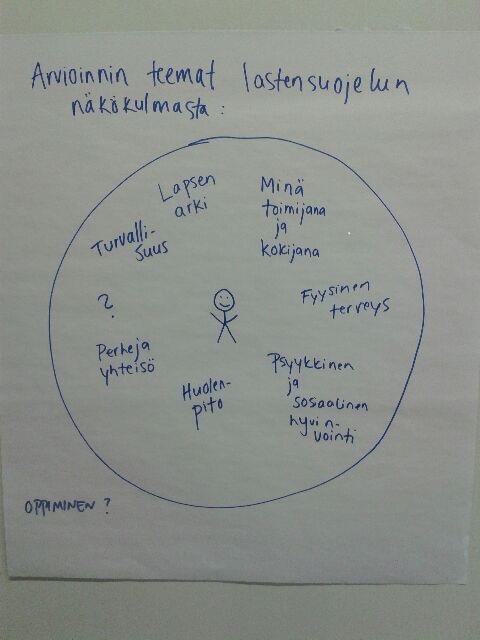 Arvioinnin teemat lastensuojelun
näkökulmasta:
Lapsen
arki
Minä
toimijana
ja
kokijana
Turvalli-
suus
Fyysinen
terveys
?
Perhe ja
yhteisö
Psyykkinen
ja
sosiaalinen
hyvin-
vointi
Huolen-
pito
OPPIMINEN?